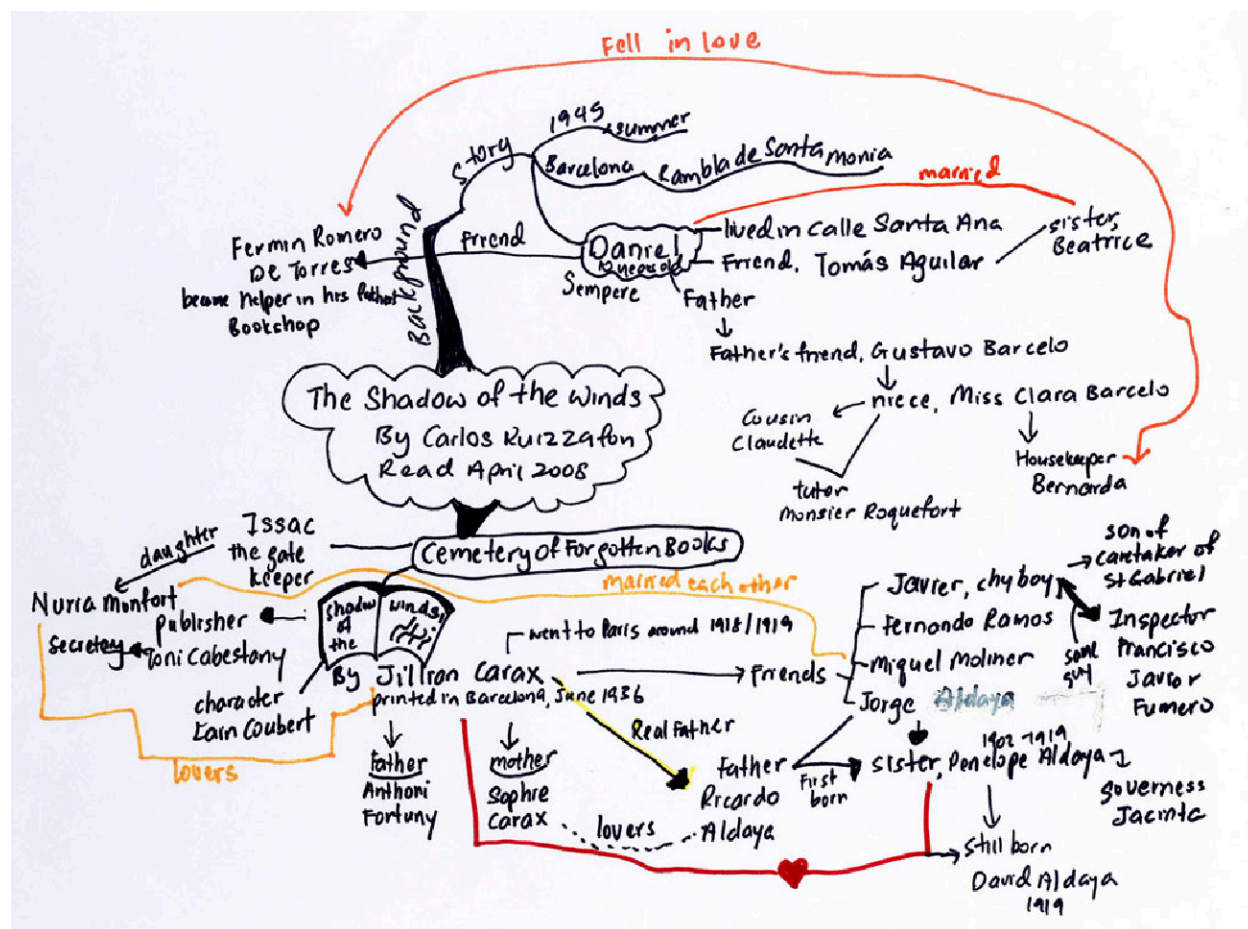 Fell in love
1945 summer
Story
Barcelona Rambla de Santa Monia
married
Background
Fermin Romero
De Torres
became helper in his father's
Bookshop
Friend
Daniel
Sempere
lived in Calle Santa Ana
Friend, Tomás Aguilar
sister,
Beatrice
Father
Father's friend, Gustavo Barcelo
niece, Miss Clara Barcelo
Cousin
Claudette
tutor
Monsier Roquefort
Housekeeper
Bernarda
The Shadow of the Winds
By Carlos Ruizzafon
Read April 2008
Cemetery of Forgotten Books
Issac
the gate
keeper
daughter
Nuria Monfort
publisher
Toni Cabestany
secretary
character
Lain Coubert
lovers
married each other
Shadow
of
the
winds
By Jillian Carax
printed in Barcelona, June 1936
went to Paris around 1918/1919
Friends
Javier, chyboy
Fernando Ramos
Miquel Moliner
Jorge Aldaya
son of
caretaker of
St Gabriel
same
guy
Inspector
Francisco
Javior
Fumero
Father
Anthoni
Fortuny
mother
Sophie
Carax
lovers
Real Father
Father
Ricardo
Aldaya
First
born
1902-1919
sister, Penelope Aldaya
governess
Jacinta
Still born
David Aldaya
1919